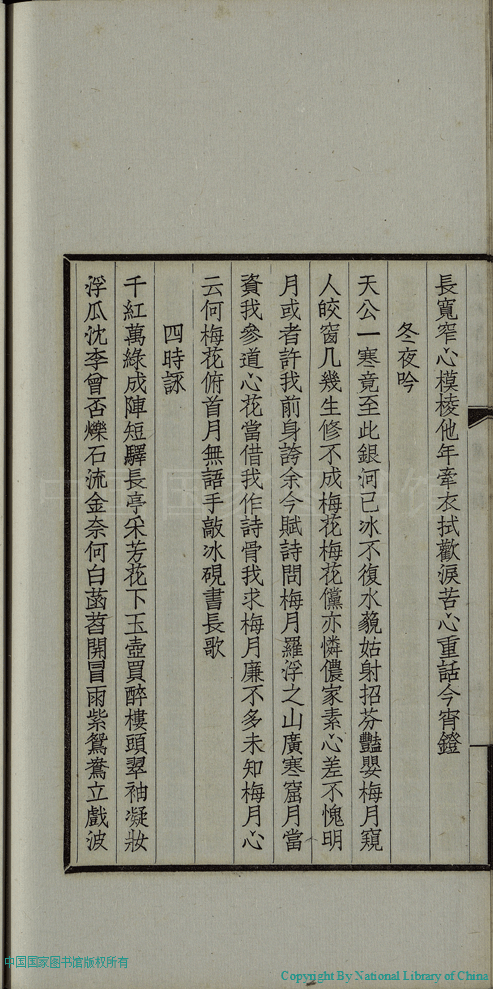 長寬窄心模棱他年牽衣拭歡淚苦心重話今宵鐙
冬夜吟
天公一寒竟至此銀河已冰不復水藐姑射招芬豔嬰梅月窺
人皎窗几幾生修不成梅花梅花儻亦憐儂家素心差不愧明
月或者許我前身誇余今賦詩問梅月羅浮之山廣寒窟月當
資我參道心花當借我作詩骨我求梅月廉不多未知梅月心
云何梅花俯首月無語手敲冰硯書長歌
四時詠
千紅萬綠成陣短驛長亭采芳花下玉壺買醉樓頭翠袖凝妝
浮瓜沈李曾否爍石流金奈何白菡萏開冒雨紫鴛鴦立戲波
中国国家图书馆版权所有
Copyright By National Library of China